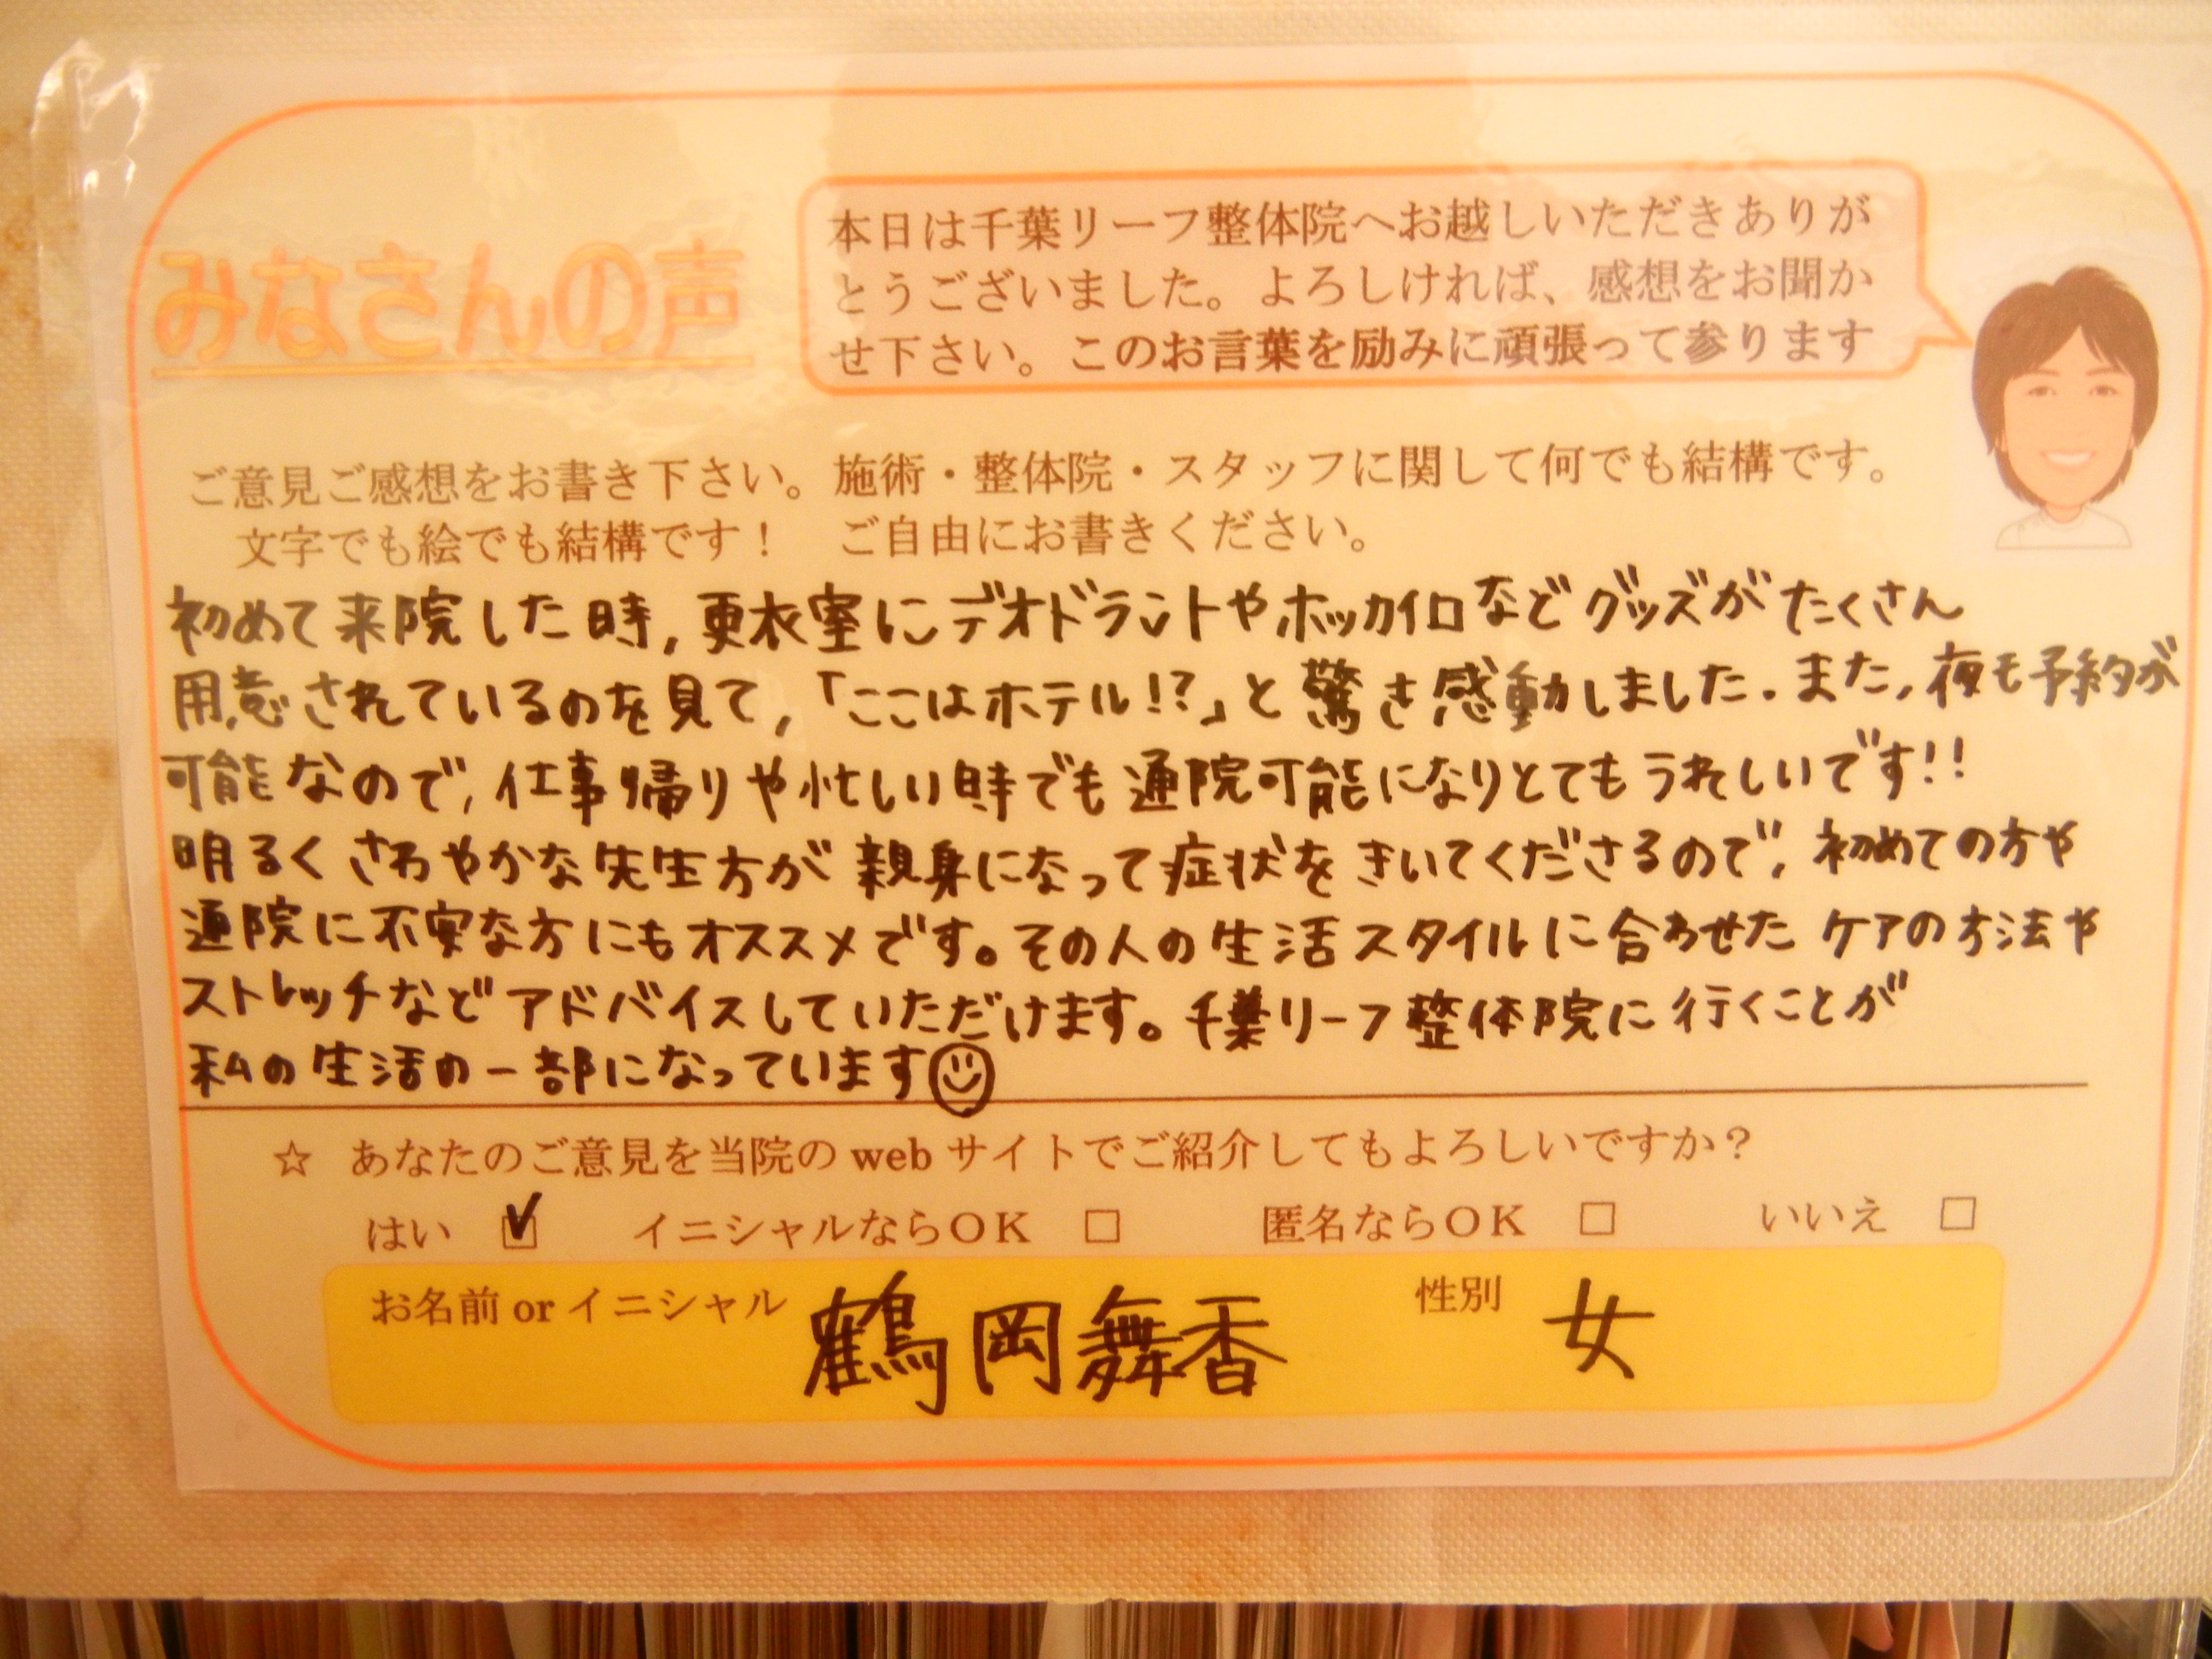 みなさんの声
本日は千葉リーフ整体院へお越しいただきありが
とうございました。よろしければ、感想をお聞か
せ下さい。このお言葉を励みに頑張って参ります
ご意見ご感想をお書き下さい。施術・整体院・スタッフに関して何でも結構です。
文字でも絵でも結構です！　ご自由にお書きください。
初めて来院した時,更衣室にデオドラントやホッカイロなどグッズがたくさん
用意されているのを見て,「ここはホテル!?」と驚き感動しました. また,夜も予約が
可能なので,仕事帰りや忙しい時でも通院可能になりとてもうれしいです!!
明るくさわやかな先生方が親身になって症状をきいてくださるので,初めての方や
通院に不安な方にもオススメです。その人の生活スタイルに合わせたケアの方法や
ストレッチなどアドバイスしていただけます。千葉リーフ整体院に行くことが
私の生活の一部になっています☺
☆ あなたのご意見を当院のwebサイトでご紹介してもよろしいですか？
はい ☑ イニシャルならOK □ 匿名ならOK □ いいえ □
お名前orイニシャル 鶴岡舞香 性別 女